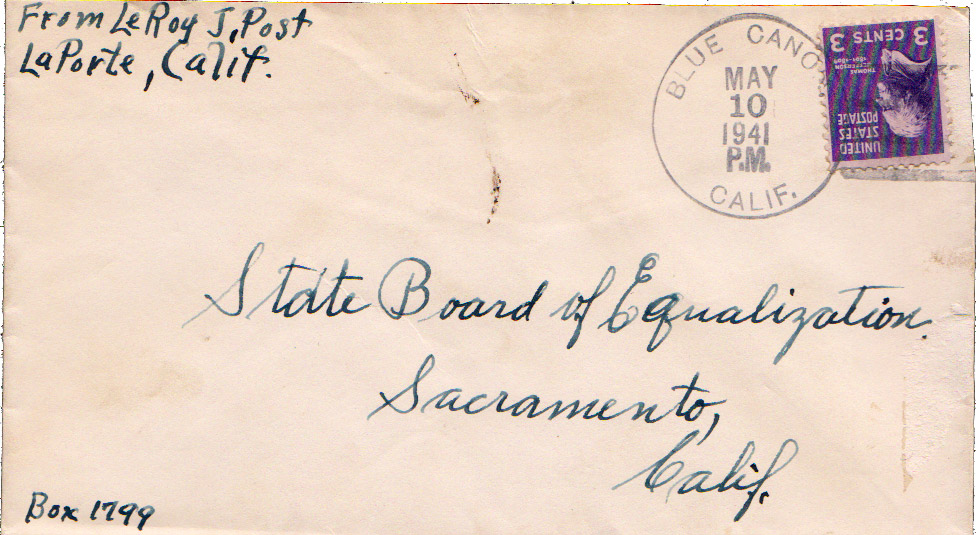 From LeRoy J. Post
LaPorte, Calif.
BLUE CANO
MAY
10
1941
P.M.
CALIF.
UNITED
STATES
POSTAGE
THOMAS
JEFFERSON
1801-1809
3 CENTS 3
State Board of Equalization
Sacramento,
Calif.
Box 1799